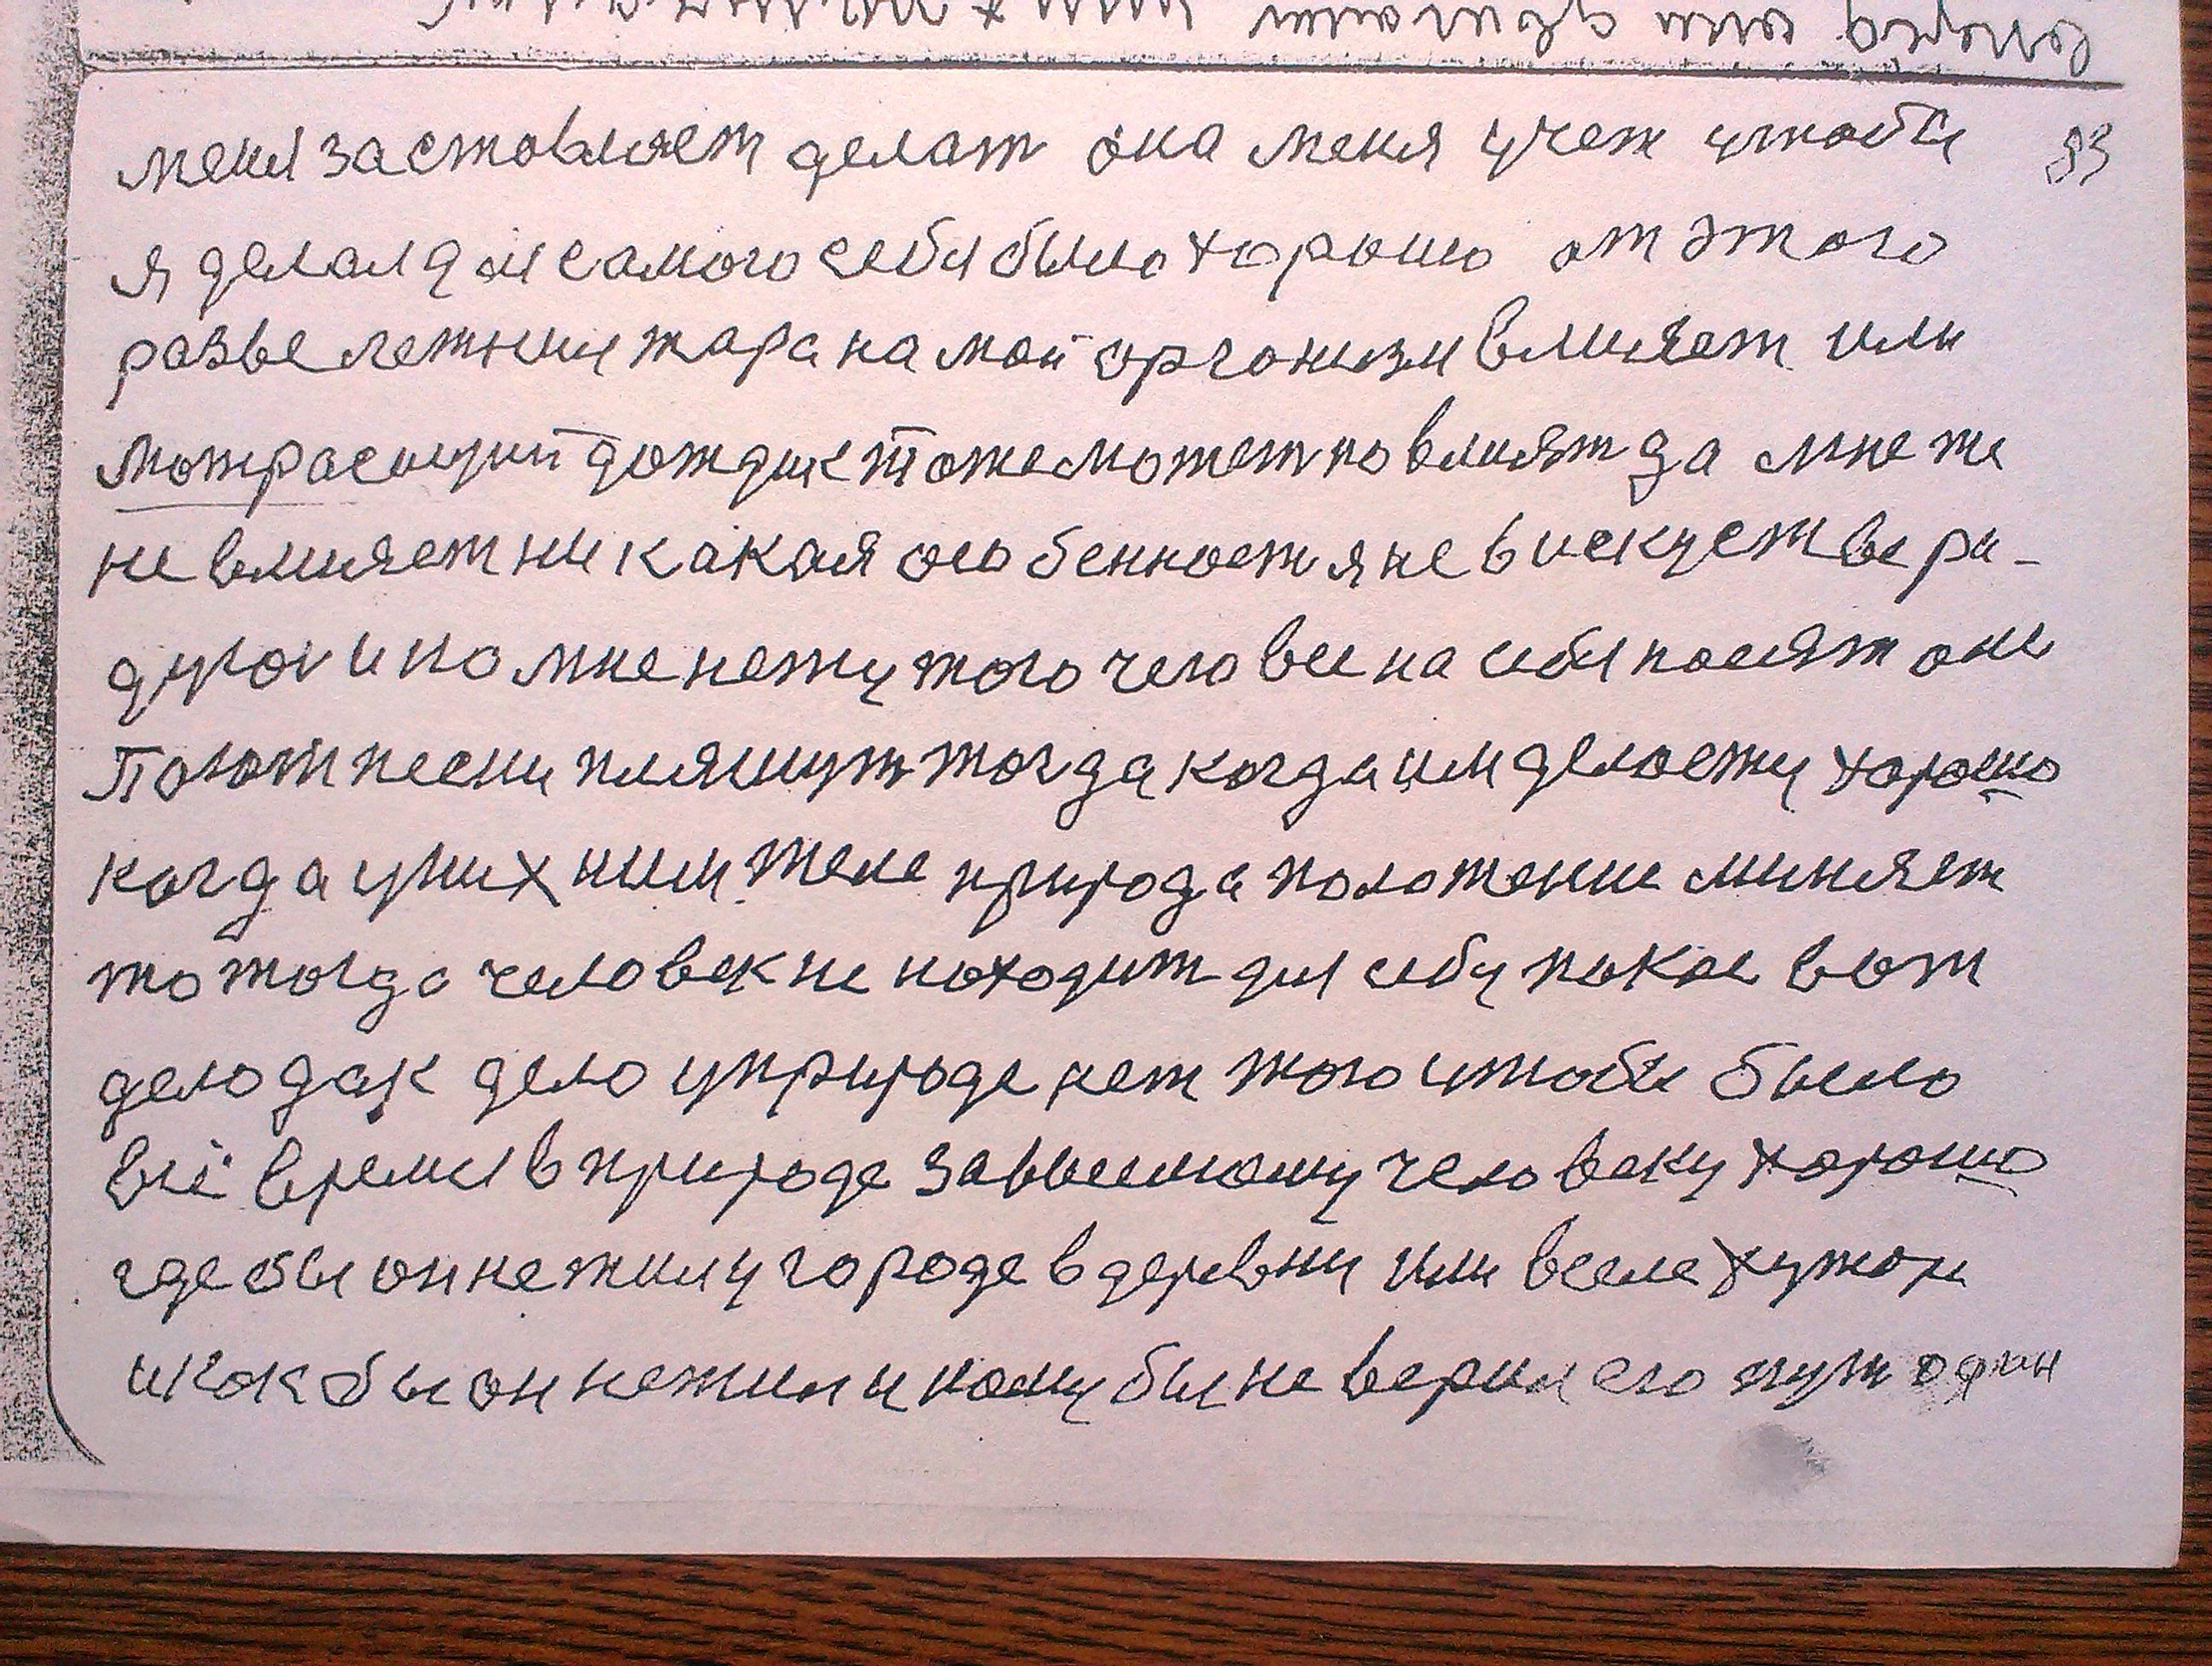 меня заставляет делат она меня учет утобы 83
я делал для самого себя было хорошо от этого
разве летнии жара на мой организм влияет или
мотрасищий дождик тоже может повлият да мне же
не влияет ни какая особенност я не в искустве ри-
дилои и по мне нету того чего все на себя поелят оне
Поют песни пляшут тогда когда им делаету хорошо
когда у них ним теле природа положение миняет
то тогда человек не находит для себу покое вот
дело дак дело у природе нет того утобы было
всё время в природе зависимому человеку хорошо
где бы он не жил у городе в деревни или в селе хуторе
и как бы он не жил и кому бы не верил его пут один